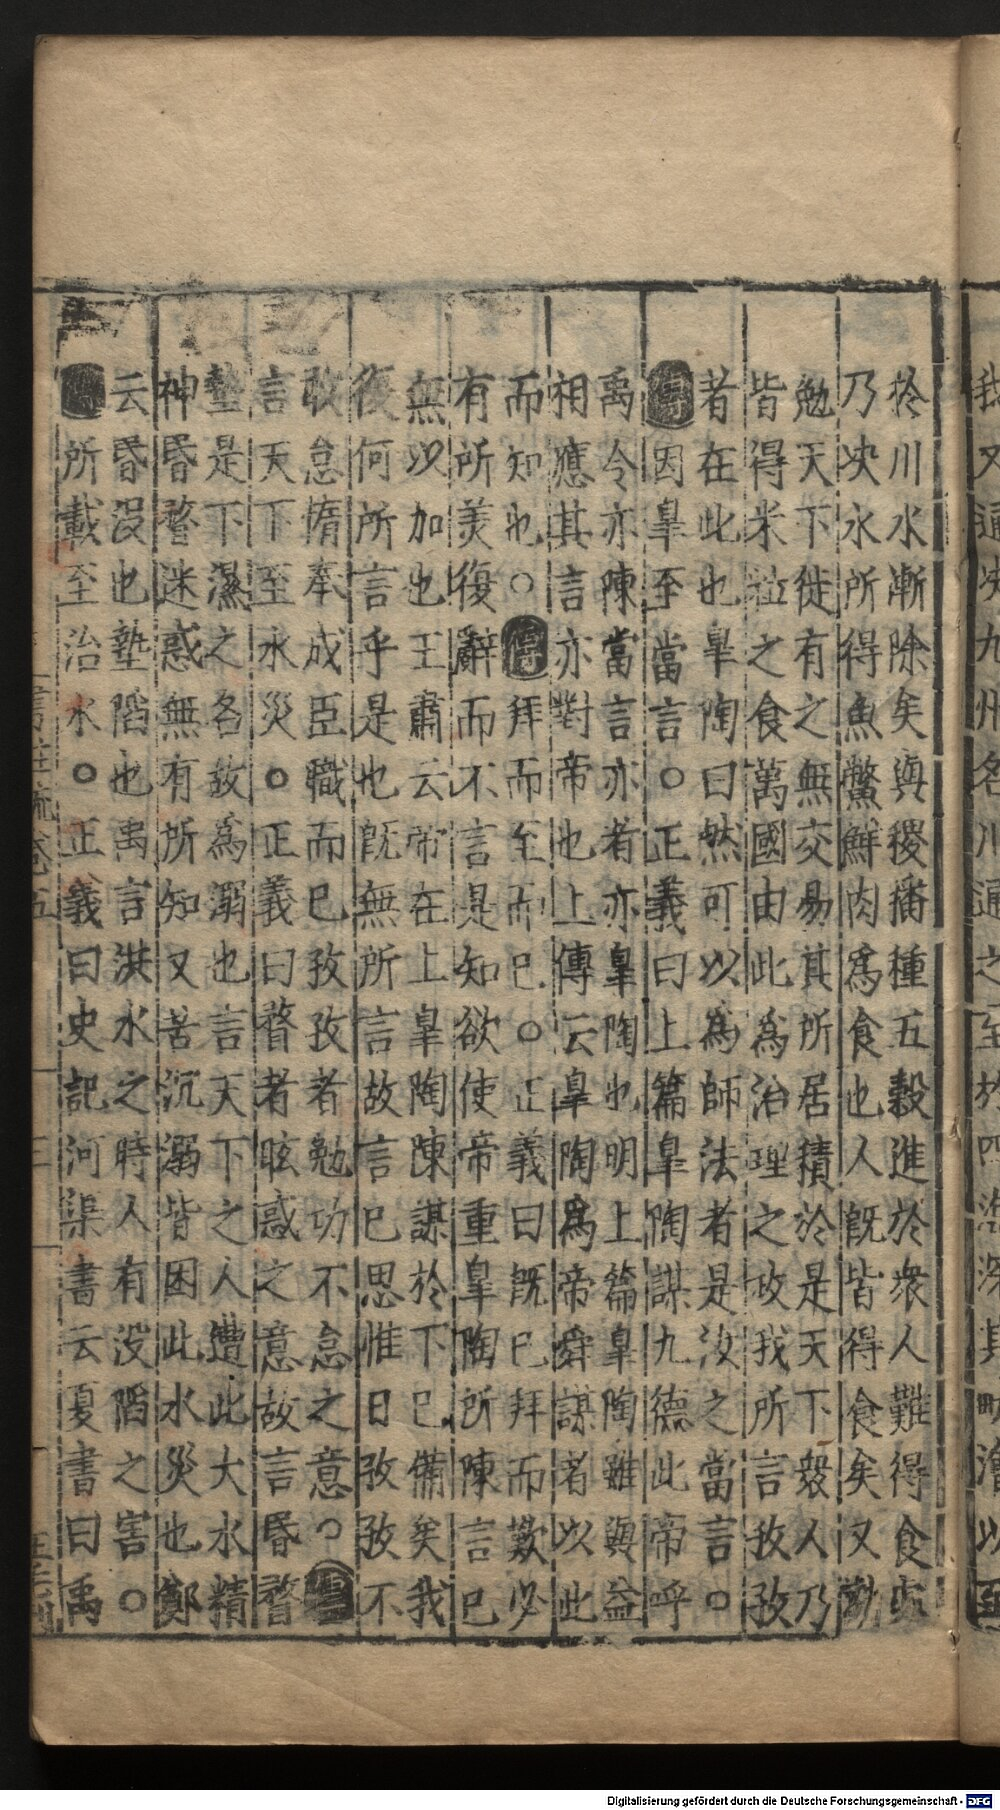 於川水漸除矣與稷播種五穀進於衆人難得食處
乃決水所得魚鱉鮮肉爲食也人既皆得食矣又勸
勉天下徙有之無交易其所居積於是天下衆人乃
皆得米粒之食萬國由此爲治理之政我所言孜孜
者在此也皐陶曰然可以爲師法者是汝之當言○
傳因皐至當言○正義曰上篇皐陶謀九德此帝呼
禹令亦陳當言亦者亦皐陶也明上篇皐陶雖與益
相應其言亦對帝也上傳云皐陶爲帝舜謀者以此
而知也○傳拜而至而已○正義曰既已拜而歎必
有所美復辭而不言是知欲使帝重皐陶所陳言已
無以加也王肅云帝在上皐陶陳謀於下已備矣我
復何所言乎是也既無所言故言已思惟日孜孜不
敢怠惰奉成臣職而已孜孜者勉功不怠之意○傳
言天下至水災○正義曰瞀者眩惑之意故言昏瞀
墊是下濕之名故爲溺也言天下之人遭此大水精
神昏瞀迷惑無有所知又苦沉溺皆困此水災也鄭
云昏沒也墊陷也禹言洪水之時人有沒陷之害○
傳所載至治水○正義曰史記河渠書云夏書曰禹
我又通決九州名川通之至於四海深其畎澮以至
Digitalisierung gefördert durch die Deutsche Forschungsgemeinschaft - DFG